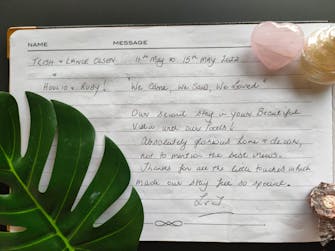 NAME MESSAGE
TRISH & LANCE OLSEN 11th May to 15th MAY 2022
" HOWIE & RUBY! "We Came, We Saw, We Loved"
Our second stay in your Beautiful
Villa with our Poods!
Absolutely gorgeous home & decor,
not to mention the best views.
Thanks for all the little touches which
made our stay feel so special.
L & T